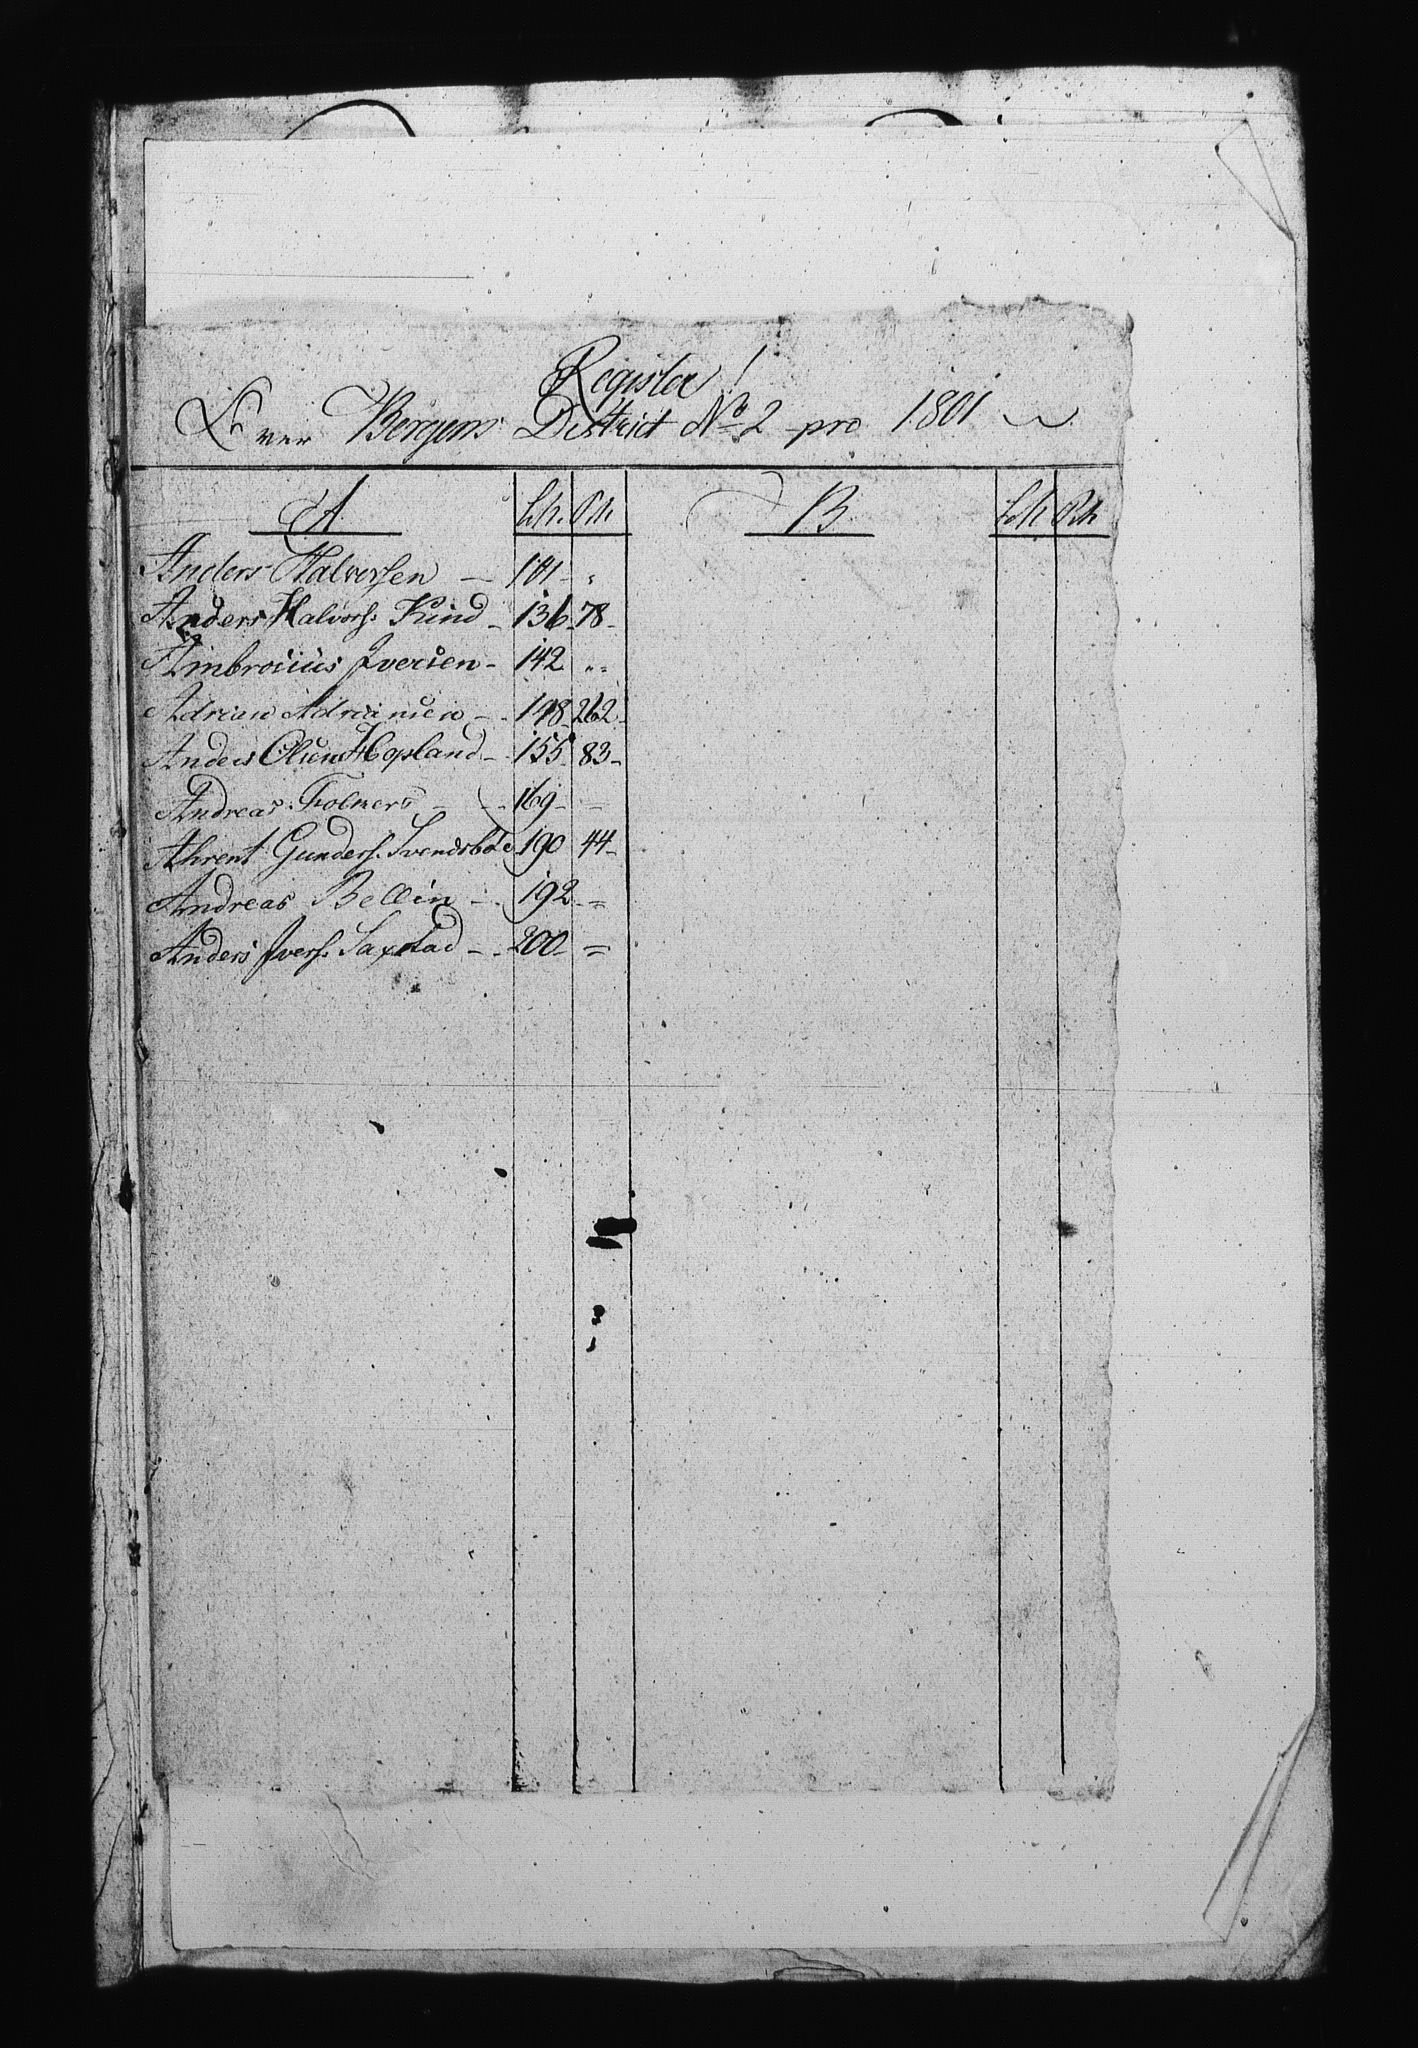 Register!
Over Bergens District No 2 pro 1801
A Lh. Rh B Lh Rh
Anders Halvorsen — 101 - "
Anders Halvors: Kind - 136 - 78 -
Ambrosius Iversen - 142 "
Adrian Adriansen - 148 - 262 -
Anders Olsen Hopland - 155 - 83 -
Andreas Folmers - 169 -
Ahrent Gunders. Svendsbøe 190 44 -
Andreas Bellin - 192 - =
Anders Ivers. Saxstad - 200 - =